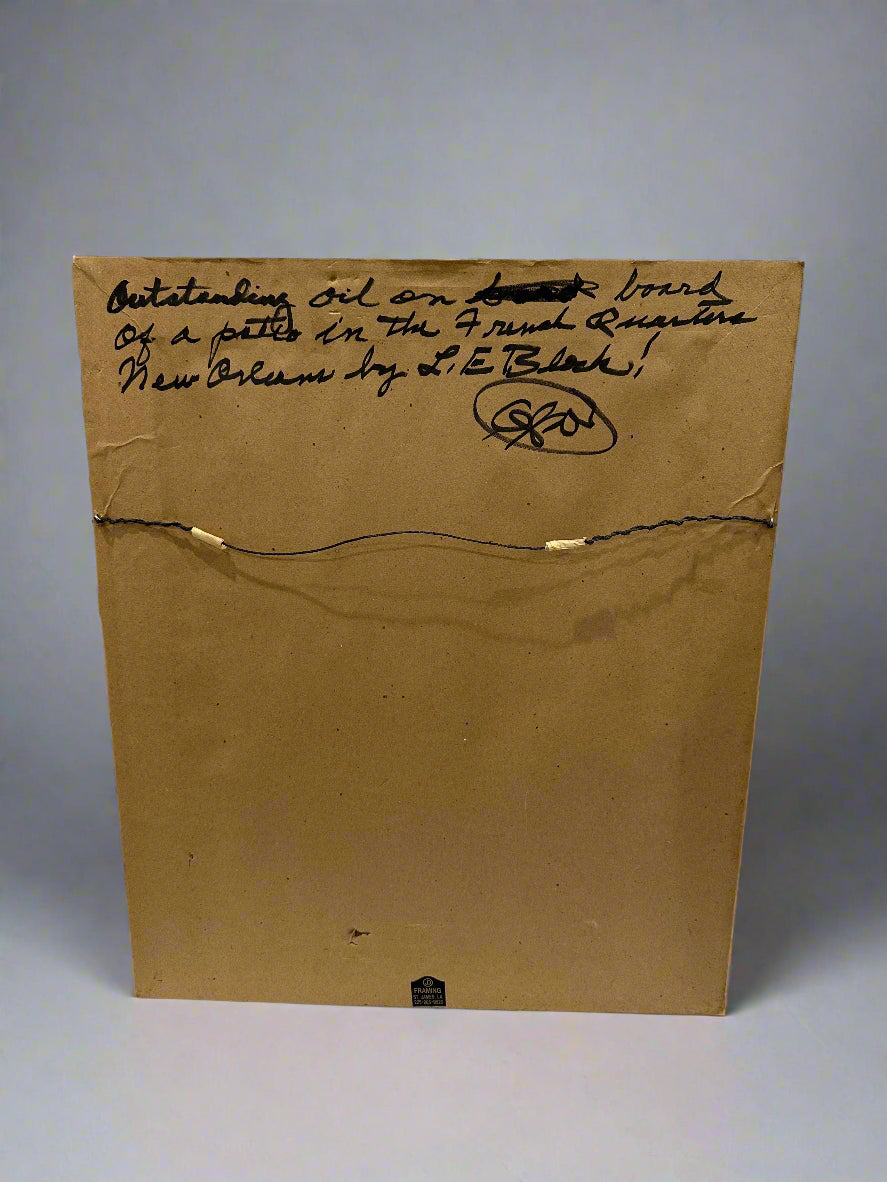 Outstanding oil on board
of a patio in the French Quarters
New Orleans by L.E Block!
JD
FRAMING
ST. JAMES, LA